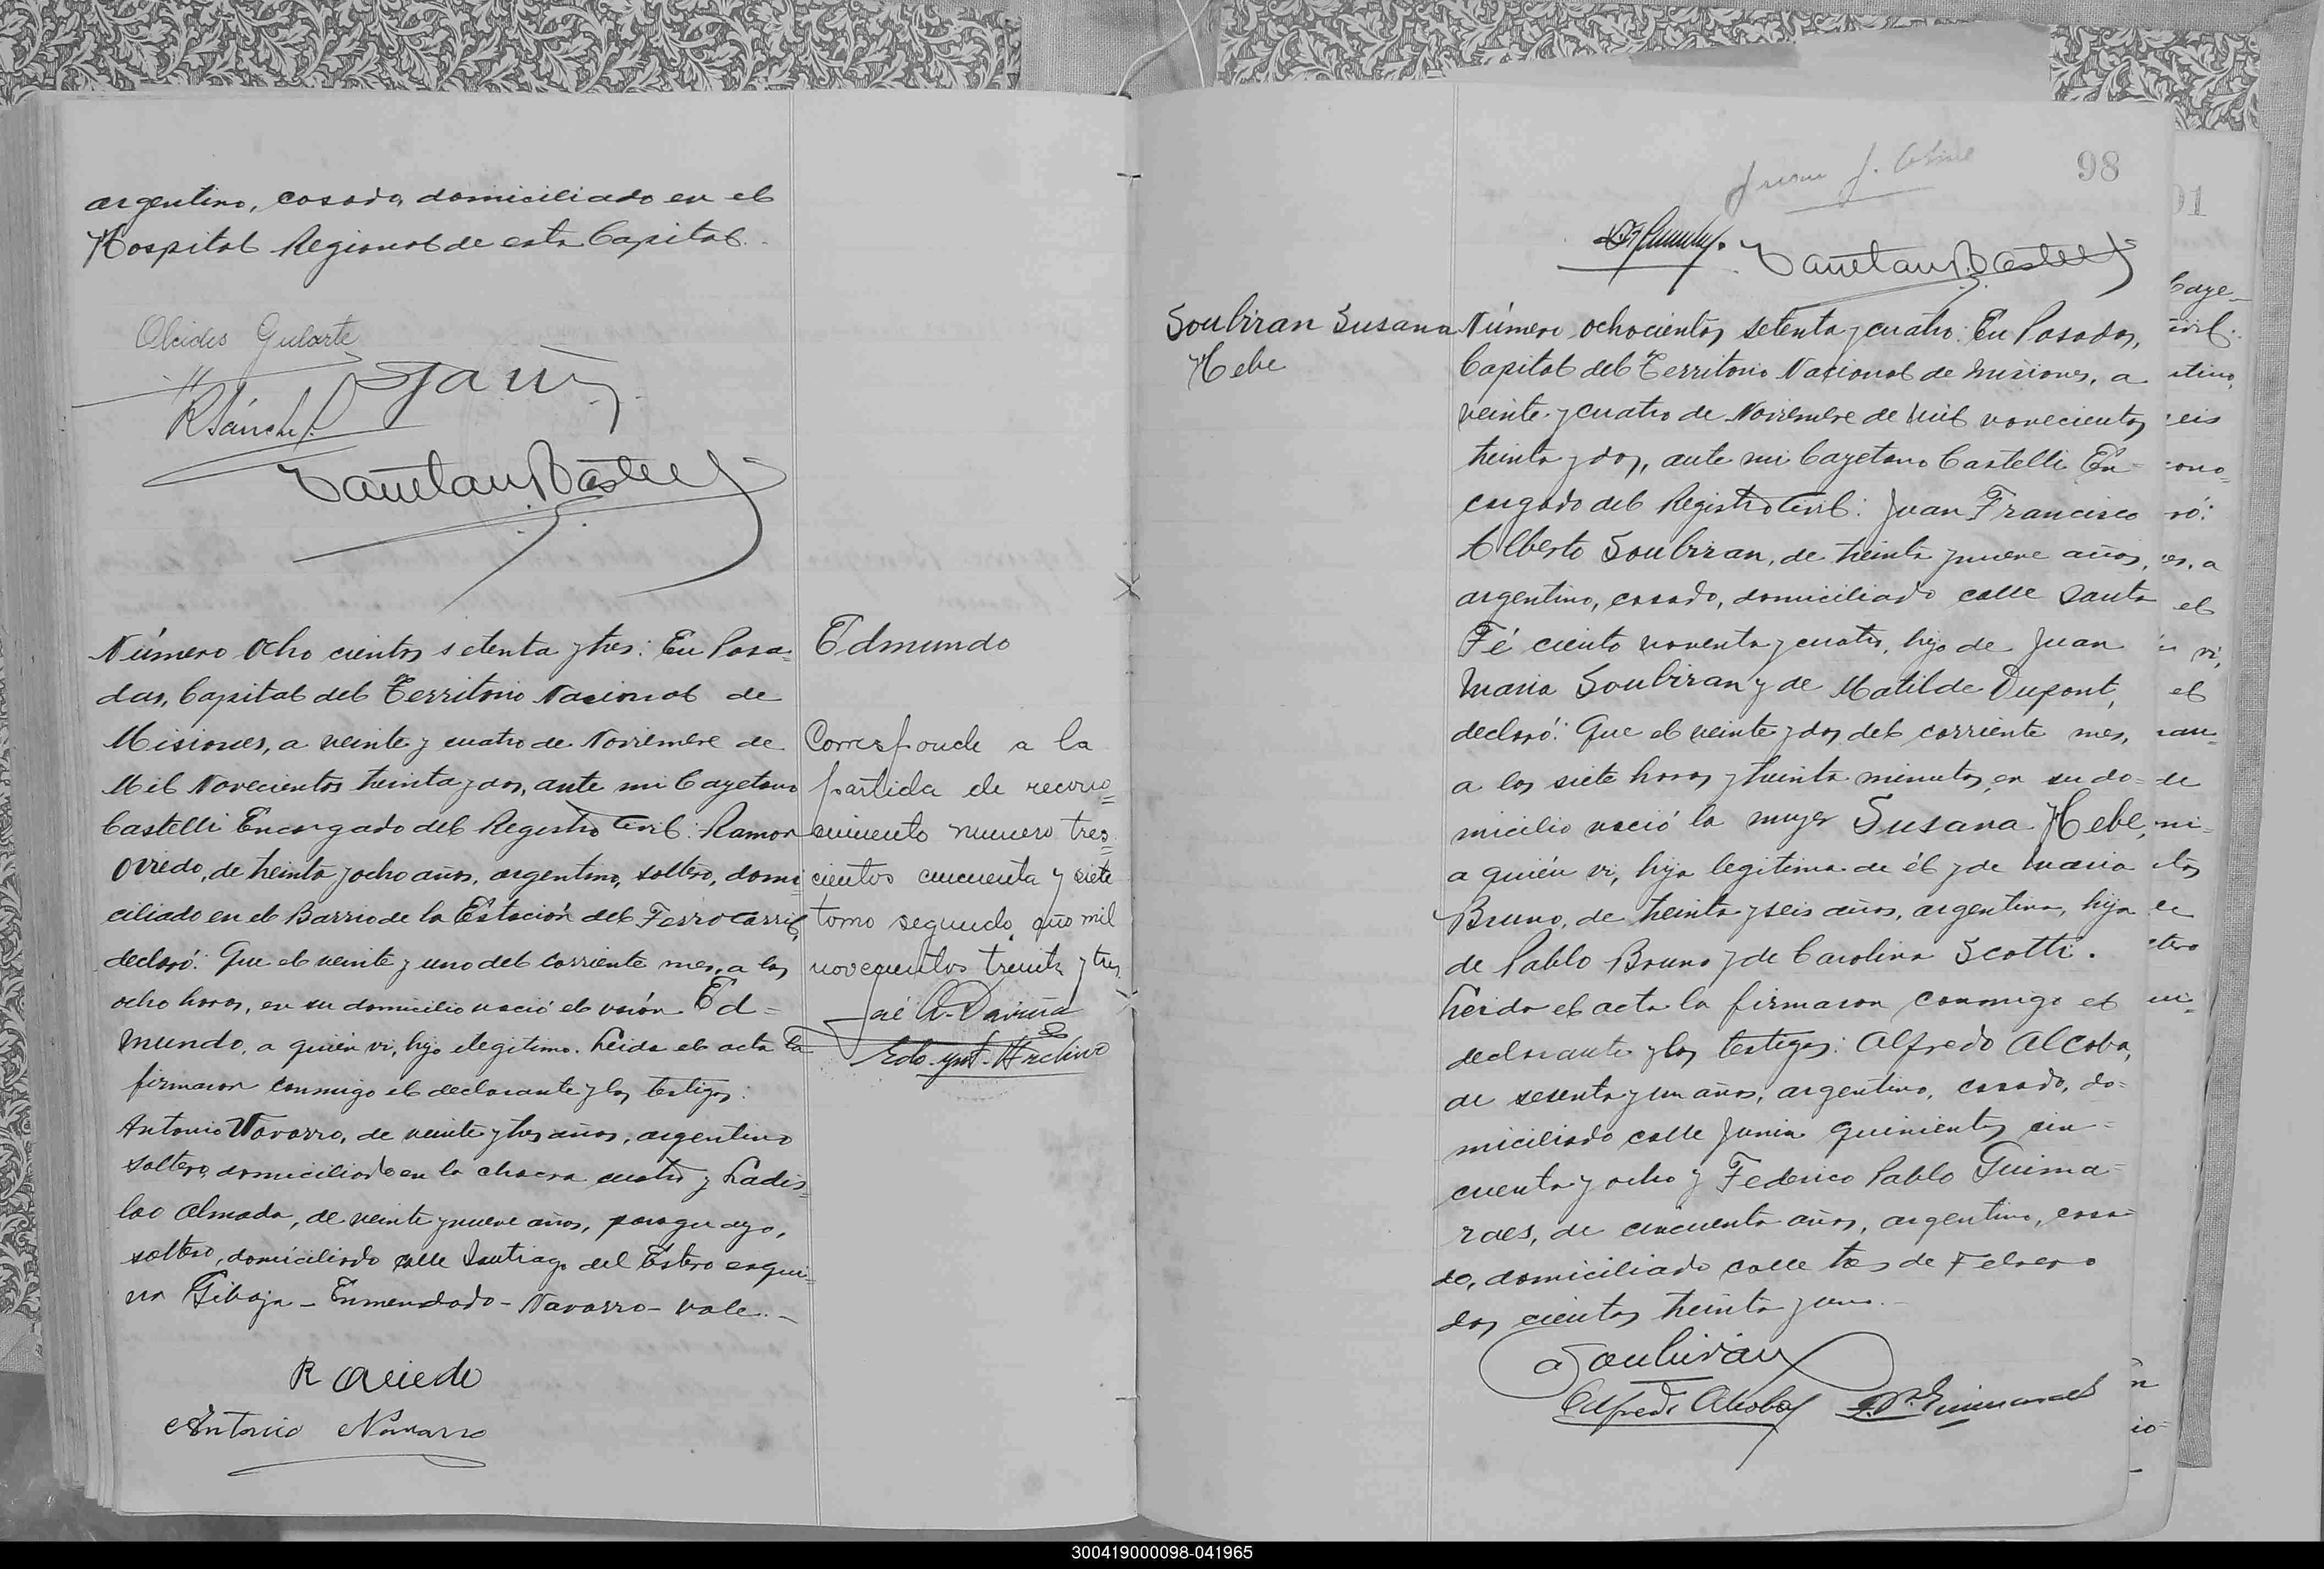 argentino, casado, domiciliado en el
Hospital Regional de esta Capital.
Alcides Gularte
RSánchez
Número Ocho cientos setenta y tres: En Posa=
das, Capital del Territorio Nacional de
Misiones, a veinte y cuatro de Noviembre de
Mil Novecientos treinta y dos, ante mi Cayetano
Castelli Encargado del Registro Civil: Ramon
Oviedo, de treinta y ocho años, argentino, soltero, domi=
ciliado en el Barrio de la Estación del Ferrocarril,
declaró: Que el veinte y uno del corriente mes, a las
ocho horas, en su domicilio nació el varón Ed=
mundo, a quién vi, hijo ilegitimo. Leida el acta la
firmaron conmigo el declarante y los testigos:
Antonio Navarro, de veinte y tres años, argentino
soltero, domiciliado en la chacra cuatro y Ladis=
lao Almada, de veinte y nueve años, paraguayo,
soltero, domiciliado calle Santiago del Estero esqui=
na Gibaja - Enmendado - Navarro - vale. -
R Oviedo
Antonio Navarro
Edmundo
Corresponde a la
partida de recono=
cimiento numero tres=
cientos cincuenta y siete
tomo segundo, año mil
novecientos treinta y tres
José A. Daviña
Archivo
98
Soubiran Susana
Hebe
Número ochocientos setenta y cuatro: En Posadas,
Capital del Territorio Nacional de Misiones, a
veinte y cuatro de Noviembre de Mil novecientos
treinta y dos, ante mi Cayetano Castelli En=
cargado del Registro Civil: Juan Francisco
Alberto Soubiran, de treinta y nueve años,
argentino, casado, domiciliado calle Santa
Fé ciento noventa y cuatro, hijo de Juan
Maria Soubiran y de Matilde Dupont,
declaró: Que el veinte y dos del corriente mes,
a las siete horas y treinta minutos, en su do=
micilio nació la mujer Susana Hebe,
a quién vi, hija legitima de él y de Maria
Bruno, de treinta y seis años, argentina, hija
de Pablo Bruno y de Carolina Scotti.
Leida el acta la firmaron conmigo el
declarante y los testigos: Alfredo Alcoba,
de sesenta y un años, argentino, casado, do=
miciliado calle Junin quinientos cin=
cuenta y ocho y Federico Pablo Guima=
raes, de cincuenta años, argentino, casa=
do, domiciliado calle tres de Febrero
dos cientos treinta y uno. -
A Soubiran
Alfredo Alcoba
F. P. Guimaraes
300419000098-041965